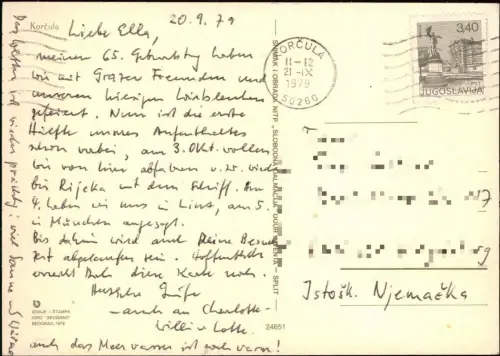 Korčula
20.9.79
Liebe Ella,
meinen 65. Geburtstag haben
wir mit Grazer Freunden und
unseren hiesigen Wirtsleuten
gefeiert. Nun ist die erste
Hälfte unseres Aufenthaltes
schon vorbei, am 3. Okt. wollen
wir von hier abfahren u. zw. wieder
bis Rijeka mit dem Schiff. Am
4. haben wir uns in Linz, am 5.
in München angesagt.
Bis dahin wird auch Deine
abgelaufen sein. Hoffentlich
erreicht Dich diese Karte noch.
Herzliche Grüße
- auch an Charlotte -
Willi u. Lotte.
auch das Meerwasser ist noch warm!
Das Wetter ist wieder prächtig: viel Sonne u.
IZDAJE I ŠTAMPA
IGRO "BEOGRAD"
BEOGRAD, 1978
24651
SNIMAK I OBRADA NITP „SLOBODNA DALMACIJA" - SPLIT
KORČULA
11-12
21-IX
1979
50260
3,40
JUGOSLAVIJA
17
g
Istočk. Njemačka